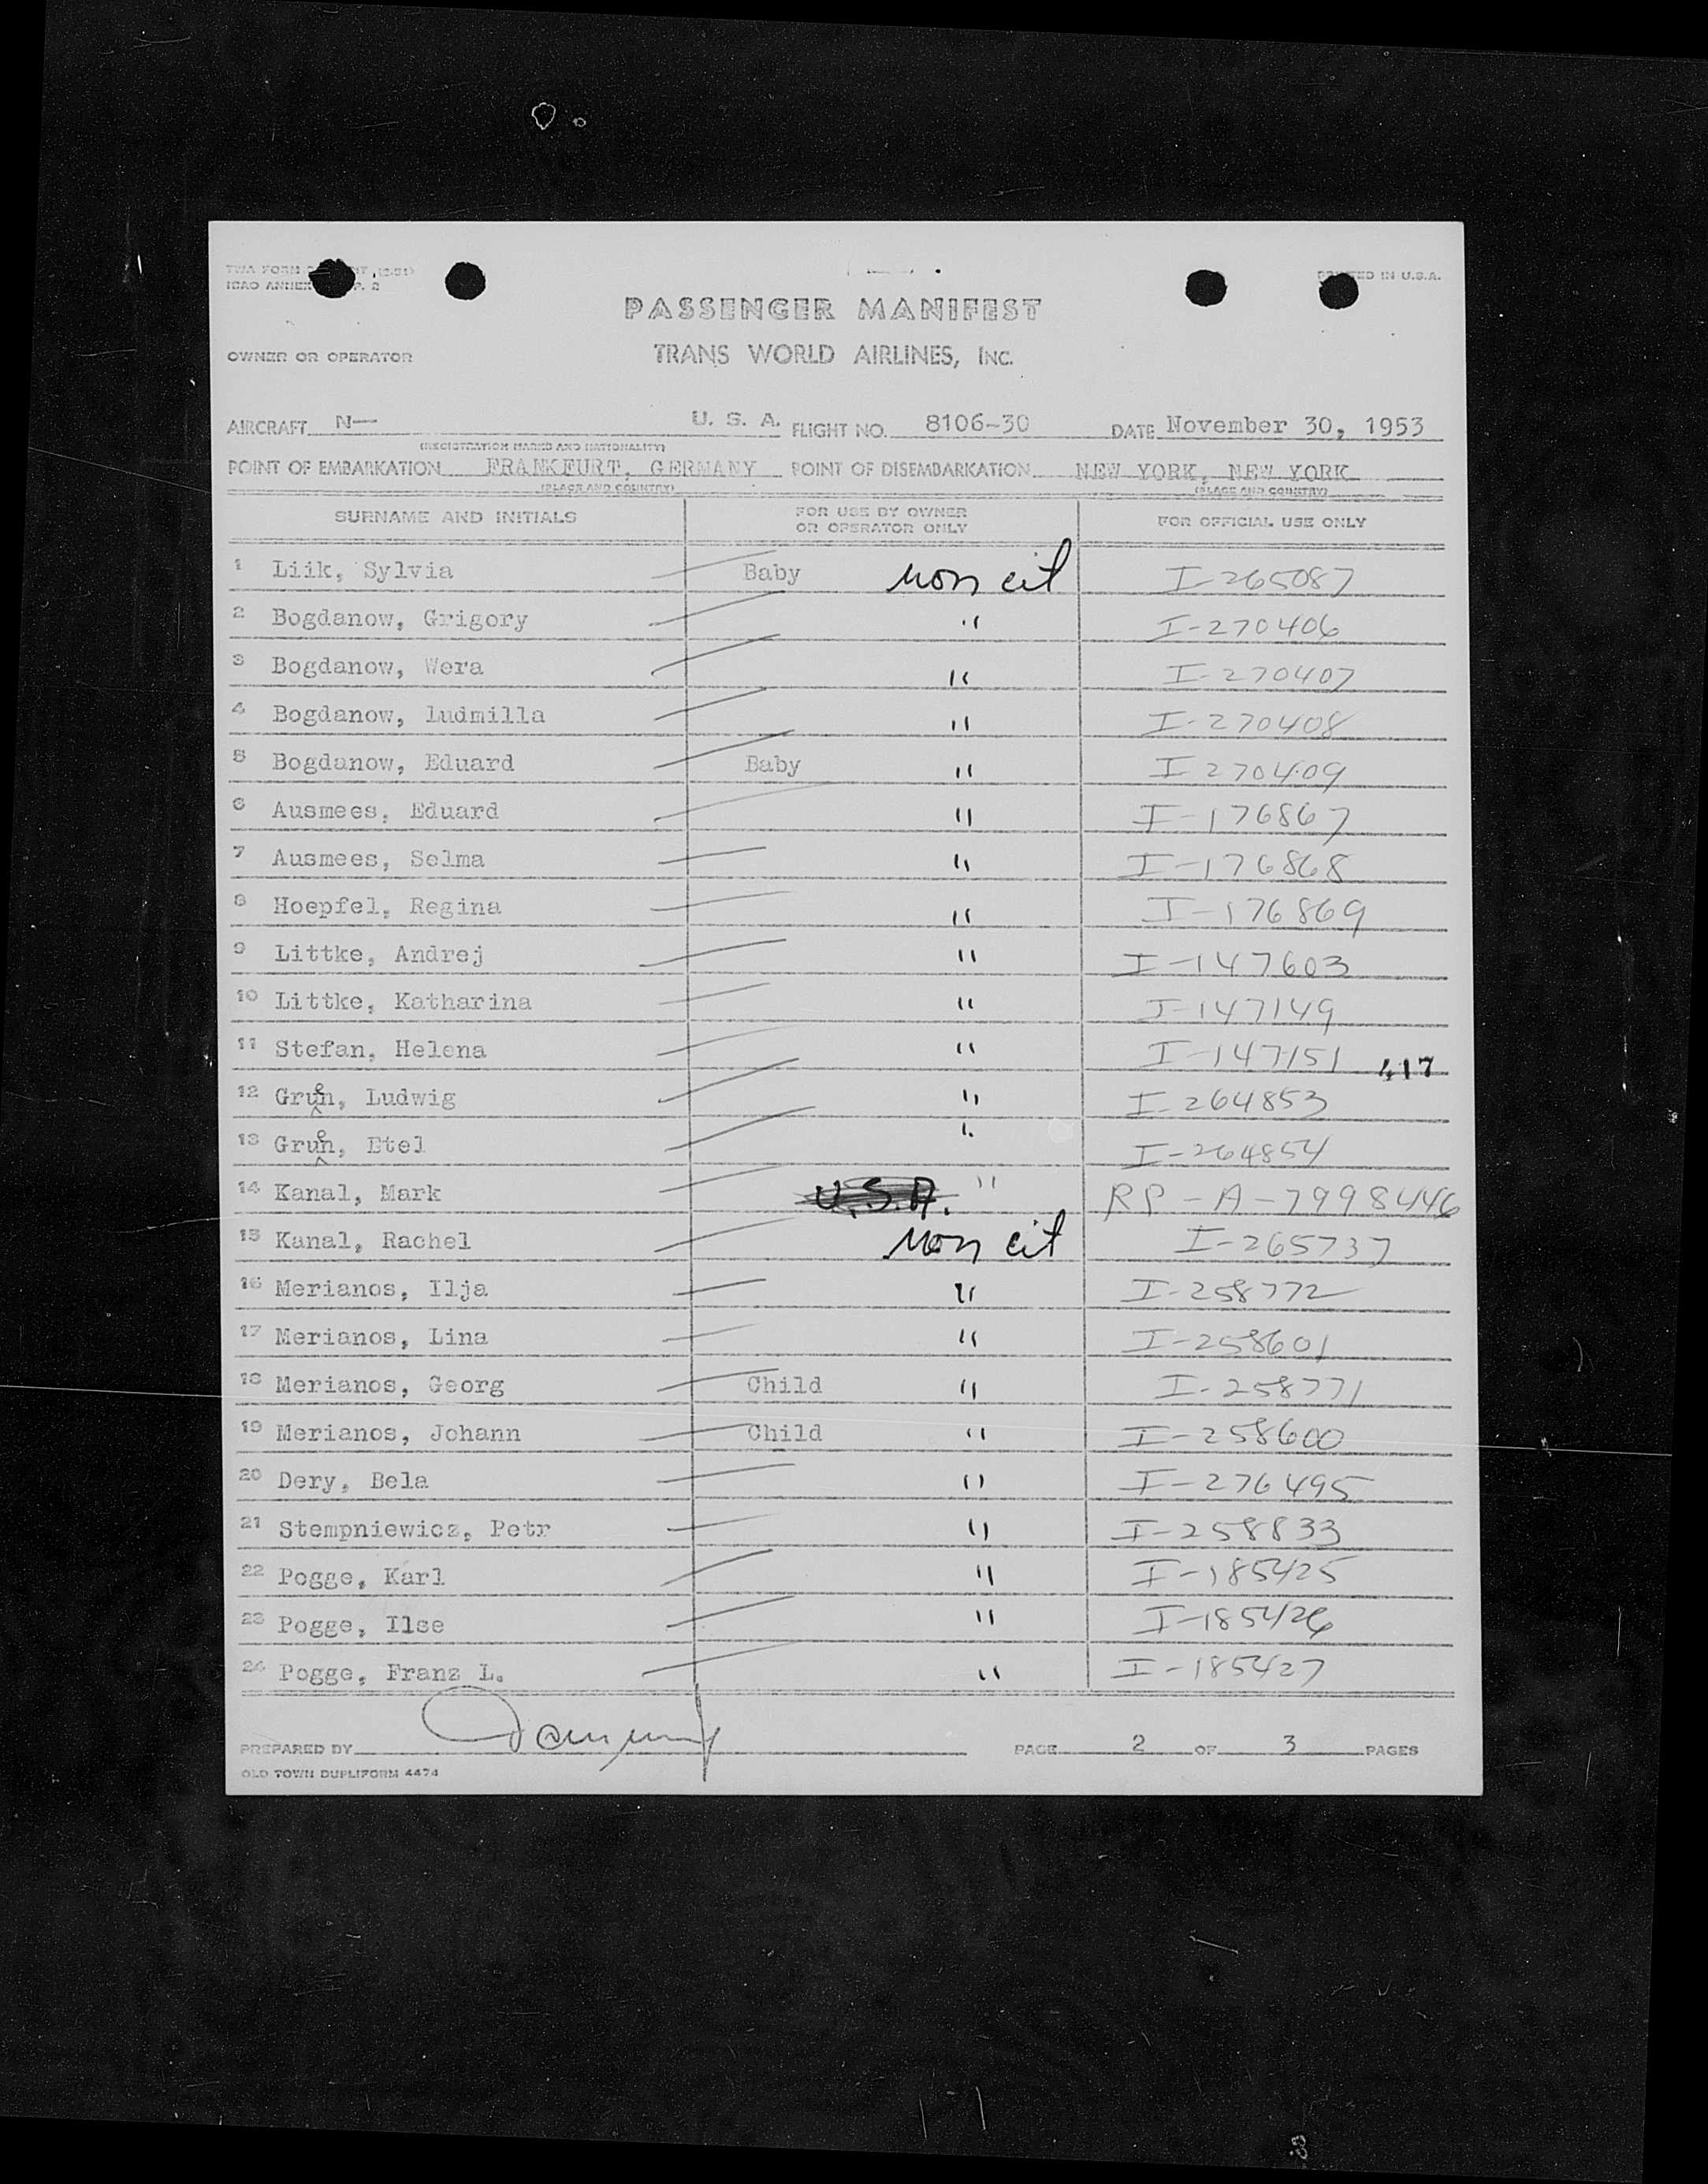 TWA FORM
ICAO ANNEX
PRINTED IN U.S.A.
PASSENGER MANIFEST
OWNER OR OPERATOR TRANS WORLD AIRLINES, INC.
AIRCRAFT N— U. S. A. FLIGHT NO. 8106-30 DATE November 30, 1953
(REGISTRATION MARKS AND NATIONALITY)
POINT OF EMBARKATION FRANKFURT, GERMANY POINT OF DISEMBARKATION NEW YORK, NEW YORK
(PLACE AND COUNTRY) (PLACE AND COUNTRY)
SURNAME AND INITIALS FOR USE BY OWNER OR OPERATOR ONLY FOR OFFICIAL USE ONLY
1 Liik, Sylvia Baby Non cit I-265087
2 Bogdanow, Grigory " I-270406
3 Bogdanow, Wera " I-270407
4 Bogdanow, Ludmilla " I-270408
5 Bogdanow, Eduard Baby " I 270409
6 Ausmees, Eduard " I-176867
7 Ausmees, Selma " I-176868
8 Hoepfel, Regina " I-176869
9 Littke, Andrej " I-147603
10 Littke, Katharina " I-147149
11 Stefan, Helena " I-147151 417
12 Gruen, Ludwig " I-264853
13 Gruen, Etel " I-264854
14 Kanal, Mark U.S.A. " RP-A-7998446
15 Kanal, Rachel Non cit I-265737
16 Merianos, Ilja " I-258772
17 Merianos, Lina " I-258601
18 Merianos, Georg Child " I-258771
19 Merianos, Johann Child " I-258600
20 Dery, Bela " I-276495
21 Stempniewicz, Petr " I-258833
22 Pogge, Karl " I-185425
23 Pogge, Ilse " I-185426
24 Pogge, Franz L. " I-185427
PREPARED BY PAGE 2 OF 3 PAGES
OLD TOWN DUPLIFORM 4474